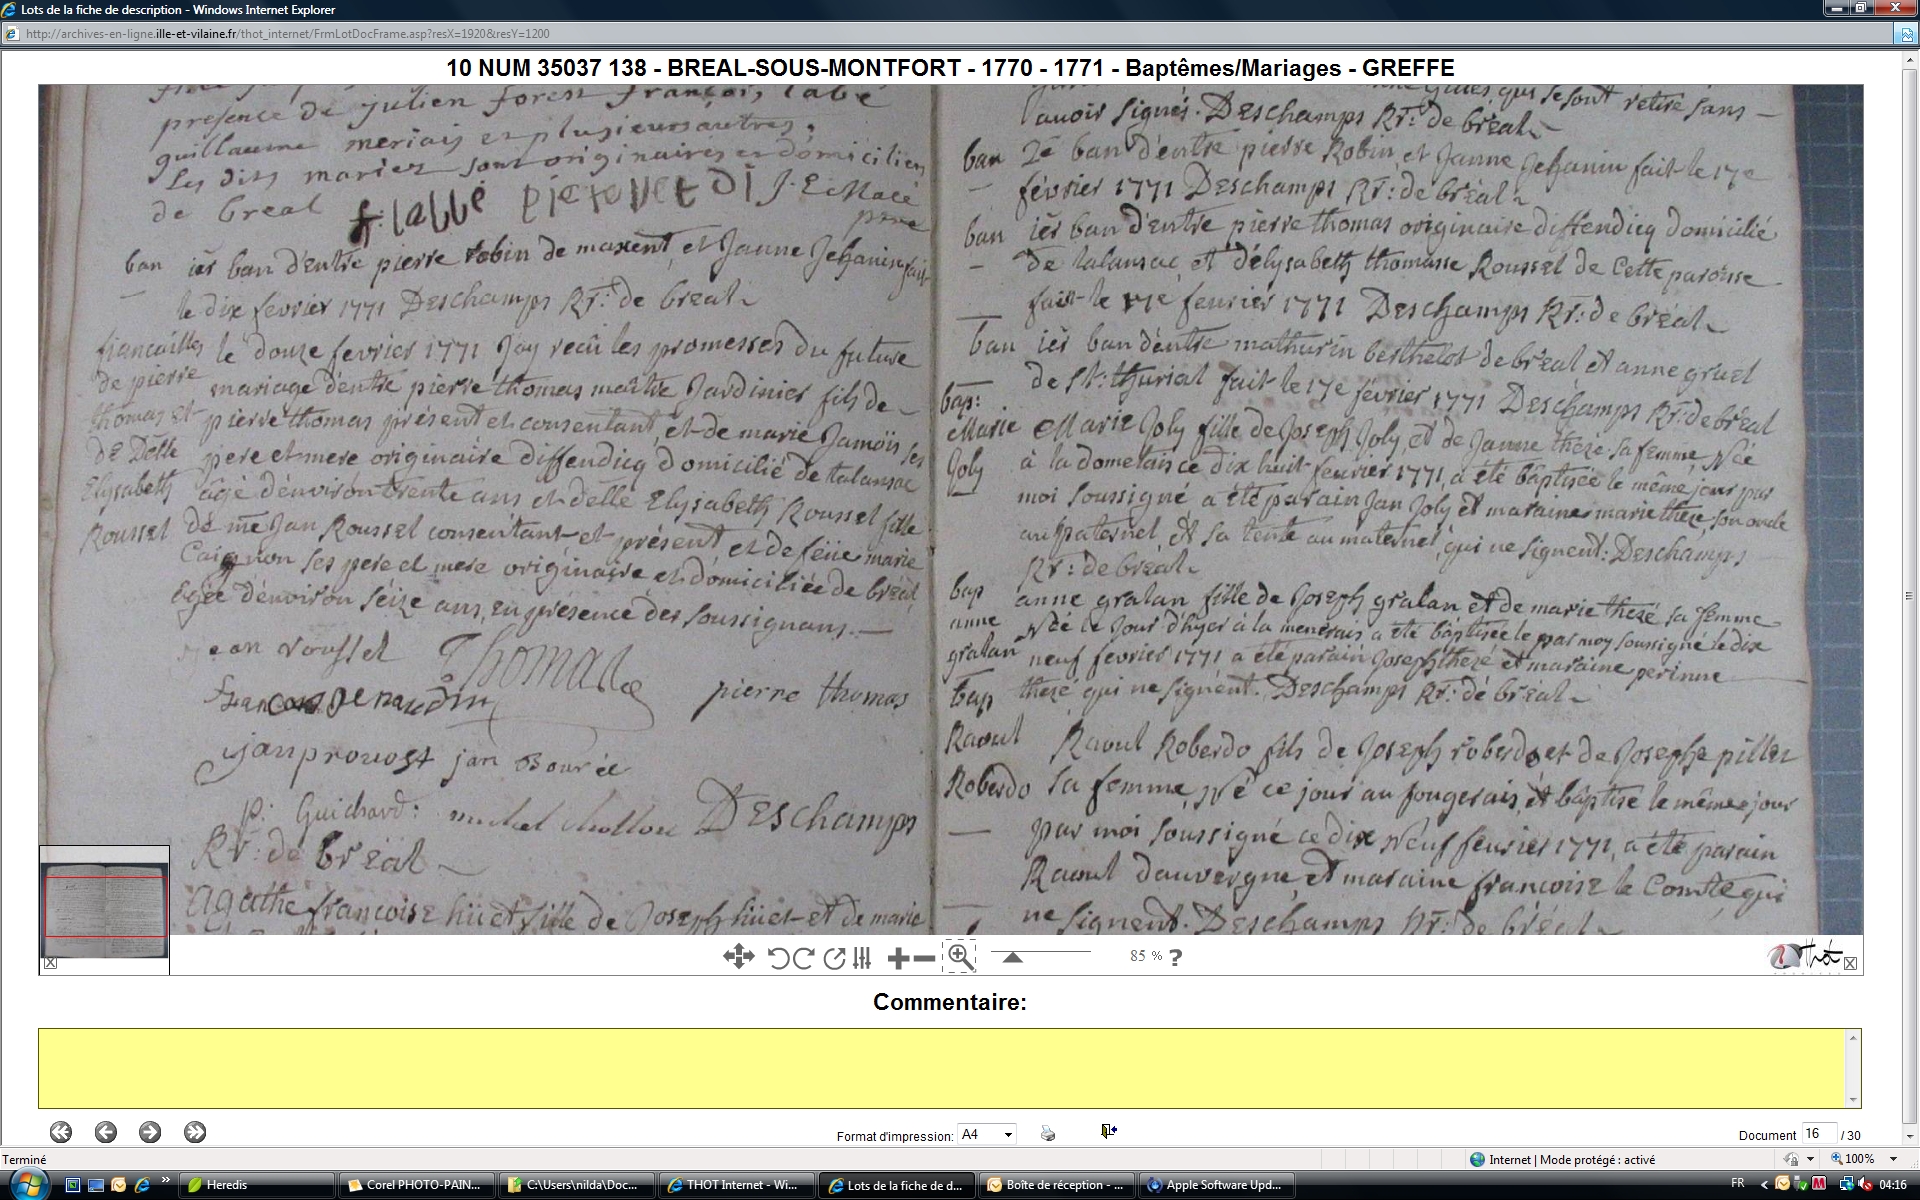 Lots de la fiche de description - Windows Internet Explorer
http://archives-en-ligne.ille-et-vilaine.fr/thot_internet/FrmLotDocFrame.asp?resX=1920&resY=1200
10 NUM 35037 138 - BREAL-SOUS-MONTFORT - 1770 - 1771 - Baptêmes/Mariages - GREFFE
presence de julien forest françois labé
guillaume meriais et plusieurs autres,
les dits mariez sont originaires et domicilies
de breal f: labbé J. E. Macé
ptre
ban ier ban d'entre pierre robin de maxent, et Janne Jehanin fait
le dix fevrier 1771 Deschamps Rr: de breal
fiancailles le douze fevrier 1771 Jay recû les promesses du future
de pierre mariage d'entre pierre thomas maître Jardinier fils de
thomas et pierre thomas présent et consentant, et de marie Jamois ses
de Delle pere et mere originaire diffendicq domicilié de talansac
Elysabeth âgé d'environ trente ans et delle Elysabeth Roussel fille
Roussel de me Jan Roussel consentant, et présent, et de feüe marie
Caignon ses pere et mere originaire et domiciliée de breal
âgée d'environ séize ans, en présence des soussignans.
jean roussel Thomas
pierre thomas
jan prouost jan Bourée
p: Guichard: michel chollou Deschamps
Rr: de breal
Agathe françoise hüet fille de Joseph hüet et de marie
qui se sont retiré sans
avoir signés. Deschamps Rr: de bréal
ban 2e ban d'entre pierre Robin, et Janne Jehanin fait le 17e
février 1771 Deschamps Rr: de bréal
ban ier ban d'entre pierre thomas originaire diffendicq domicilié
de talansac, et d'élysabeth thomasse Roussel de cette paroisse
fait le 17e fevrier 1771 Deschamps Rr: de bréal
ban ier ban d'entre mathurin berthelot de breal et anne gruel
de St: thurial fait le 17e février 1771 Deschamps Rr: de bréal
bap:
Marie Marie Joly fille de Joseph Joly, et de Janne thezé sa femme, Née
Joly à la dometais ce dix huit fevrier 1771, a été bâptisée le même jour par
moi soussigné a été parain Jan Joly et maraine marie thezé, son oncle
au paternel, et sa tente au maternel, qui ne signent: Deschamps
Rr: de bréal
bap anne gralan fille de Joseph gralan et de marie thezé sa femme
anne Née le jour d'hyer à la menerais a été bâptisée le par moy soussigné le dix
gralan neuf fevrier 1771 a été parain Joseph thezé et maraine perinne
bap thezé qui ne signent. Deschamps Rr: de bréal
Raoul Raoul Roberdo fils de Joseph roberdo et de Josephe piller
Roberdo sa femme, Né ce jour au fougerais, et bâptisé le même jour
par moi soussigné ce dix Neuf fevrier 1771, a été parain
Raoul dauvergne, et maraine francoise le Comte qui
ne signent. Deschamps Rr: de bréal
85 % ?
Thot
Commentaire:
Format d'impression: A4
Document 16 / 30
Terminé
Internet | Mode protégé : activé
100%
Heredis
Corel PHOTO-PAIN...
C:\Users\nilda\Doc...
THOT Internet - Wi...
Lots de la fiche de d...
Boîte de réception - ...
Apple Software Upd...
FR
04:16